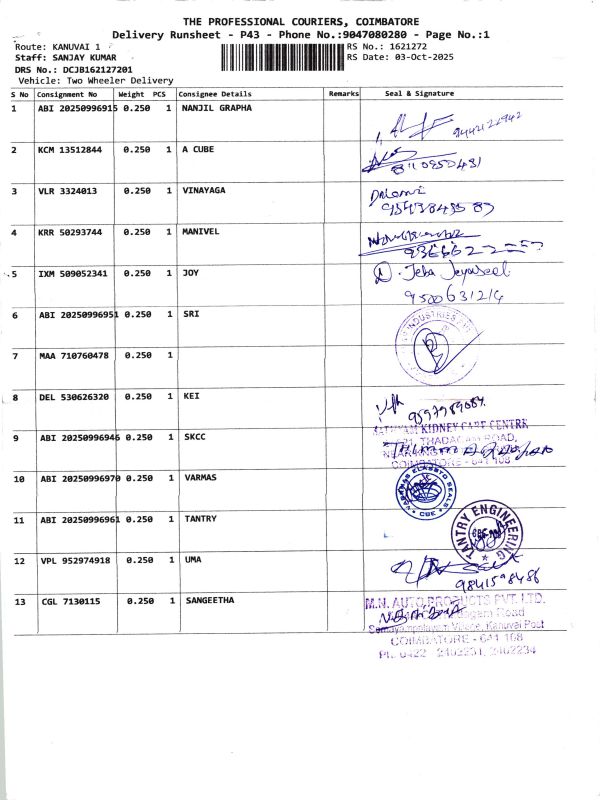 THE PROFESSIONAL COURIERS, COIMBATORE
Delivery Runsheet - P43 - Phone No.:9047080280 - Page No.:1
Route: KANUVAI 1 RS No.: 1621272
Staff: SANJAY KUMAR RS Date: 03-Oct-2025
DRS No.: DCJB162127201
Vehicle: Two Wheeler Delivery
S No Consignment No Weight PCS Consignee Details Remarks Seal & Signature
1 ABI 20250996915 0.250 1 NANJIL GRAPHA
2 KCM 13512844 0.250 1 A CUBE
3 VLR 3324013 0.250 1 VINAYAGA
4 KRR 50293744 0.250 1 MANIVEL
5 IXM 509052341 0.250 1 JOY Jeba Jeyaseel
9500631214
6 ABI 20250996951 0.250 1 SRI
INDUSTRIES
7 MAA 710760478 0.250 1
8 DEL 530626320 0.250 1 KEI
9597989084
9 ABI 20250996946 0.250 1 SKCC
KIDNEY CARE CENTRE
THADAGAM ROAD,
COIMBATORE - 641 108
10 ABI 20250996970 0.250 1 VARMAS
VARMAS ELASSTO SEALS
CBE
11 ABI 20250996961 0.250 1 TANTRY
TANTRY ENGINEERING
12 VPL 952974918 0.250 1 UMA
9841598486
13 CGL 7130115 0.250 1 SANGEETHA
M.N. AUTO PRODUCTS PVT. LTD.
Road
Somayampalayam Village, Kanuvai Post
COIMBATORE - 641 108
Ph: 0422 - 2403231, 2402234